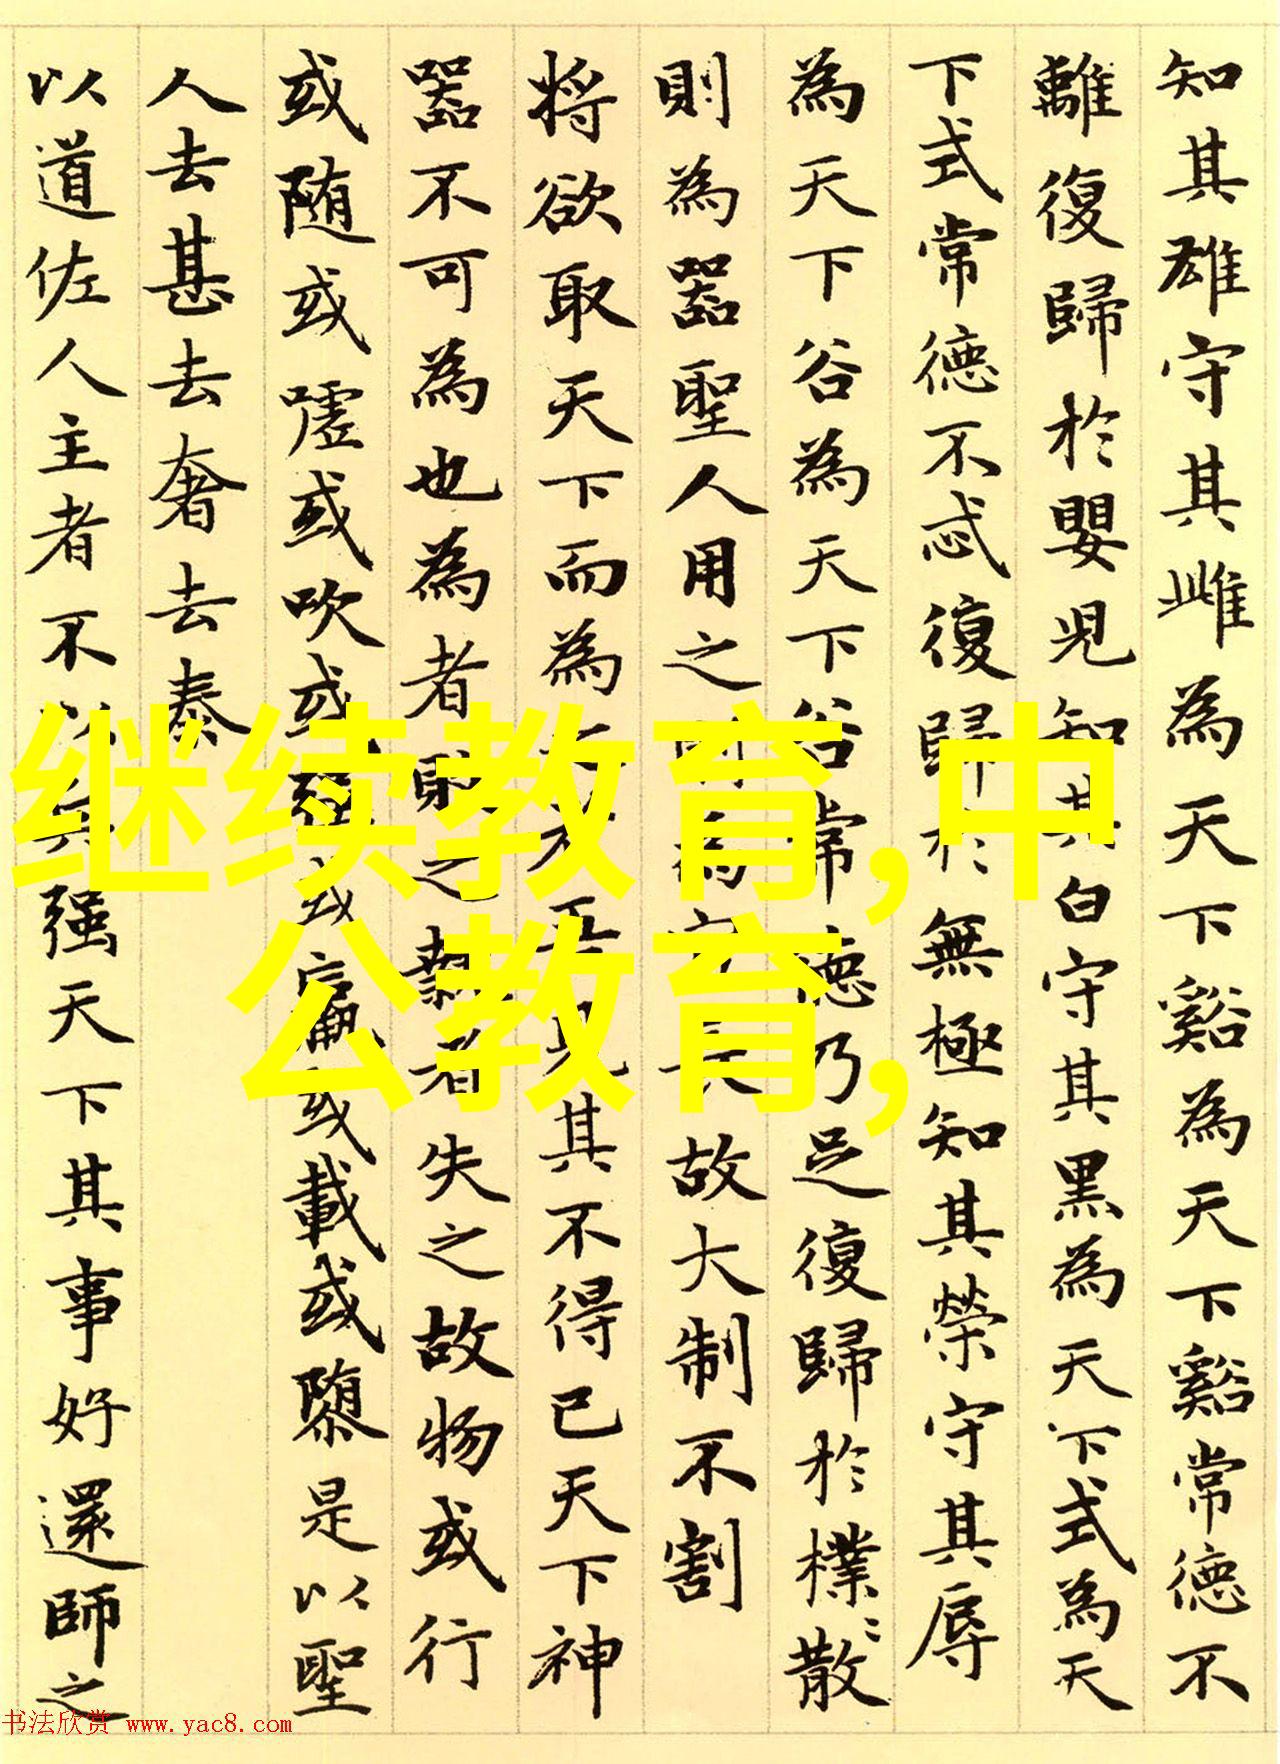 知其雄守其雌為天下谿為天下谿常德不
離復歸於嬰兒知其白守其黑為天下式為天
下式常德不忒復歸於無極知其榮守其辱
為天下谷為天下谷常德乃足復歸於樸〻散
則為器聖人用之則為官長故大制不割
將欲取天下而為之者吾見其不得已天下神
器不可為也為者敗之執者失之故物或行
或随或嘘或吹或强或羸或載或隳是以聖
人去甚去奢去泰
以道佐人主者不以兵强天下其事好還師之
继续教育,中
公教育,
书法欣赏 www.yac8.com